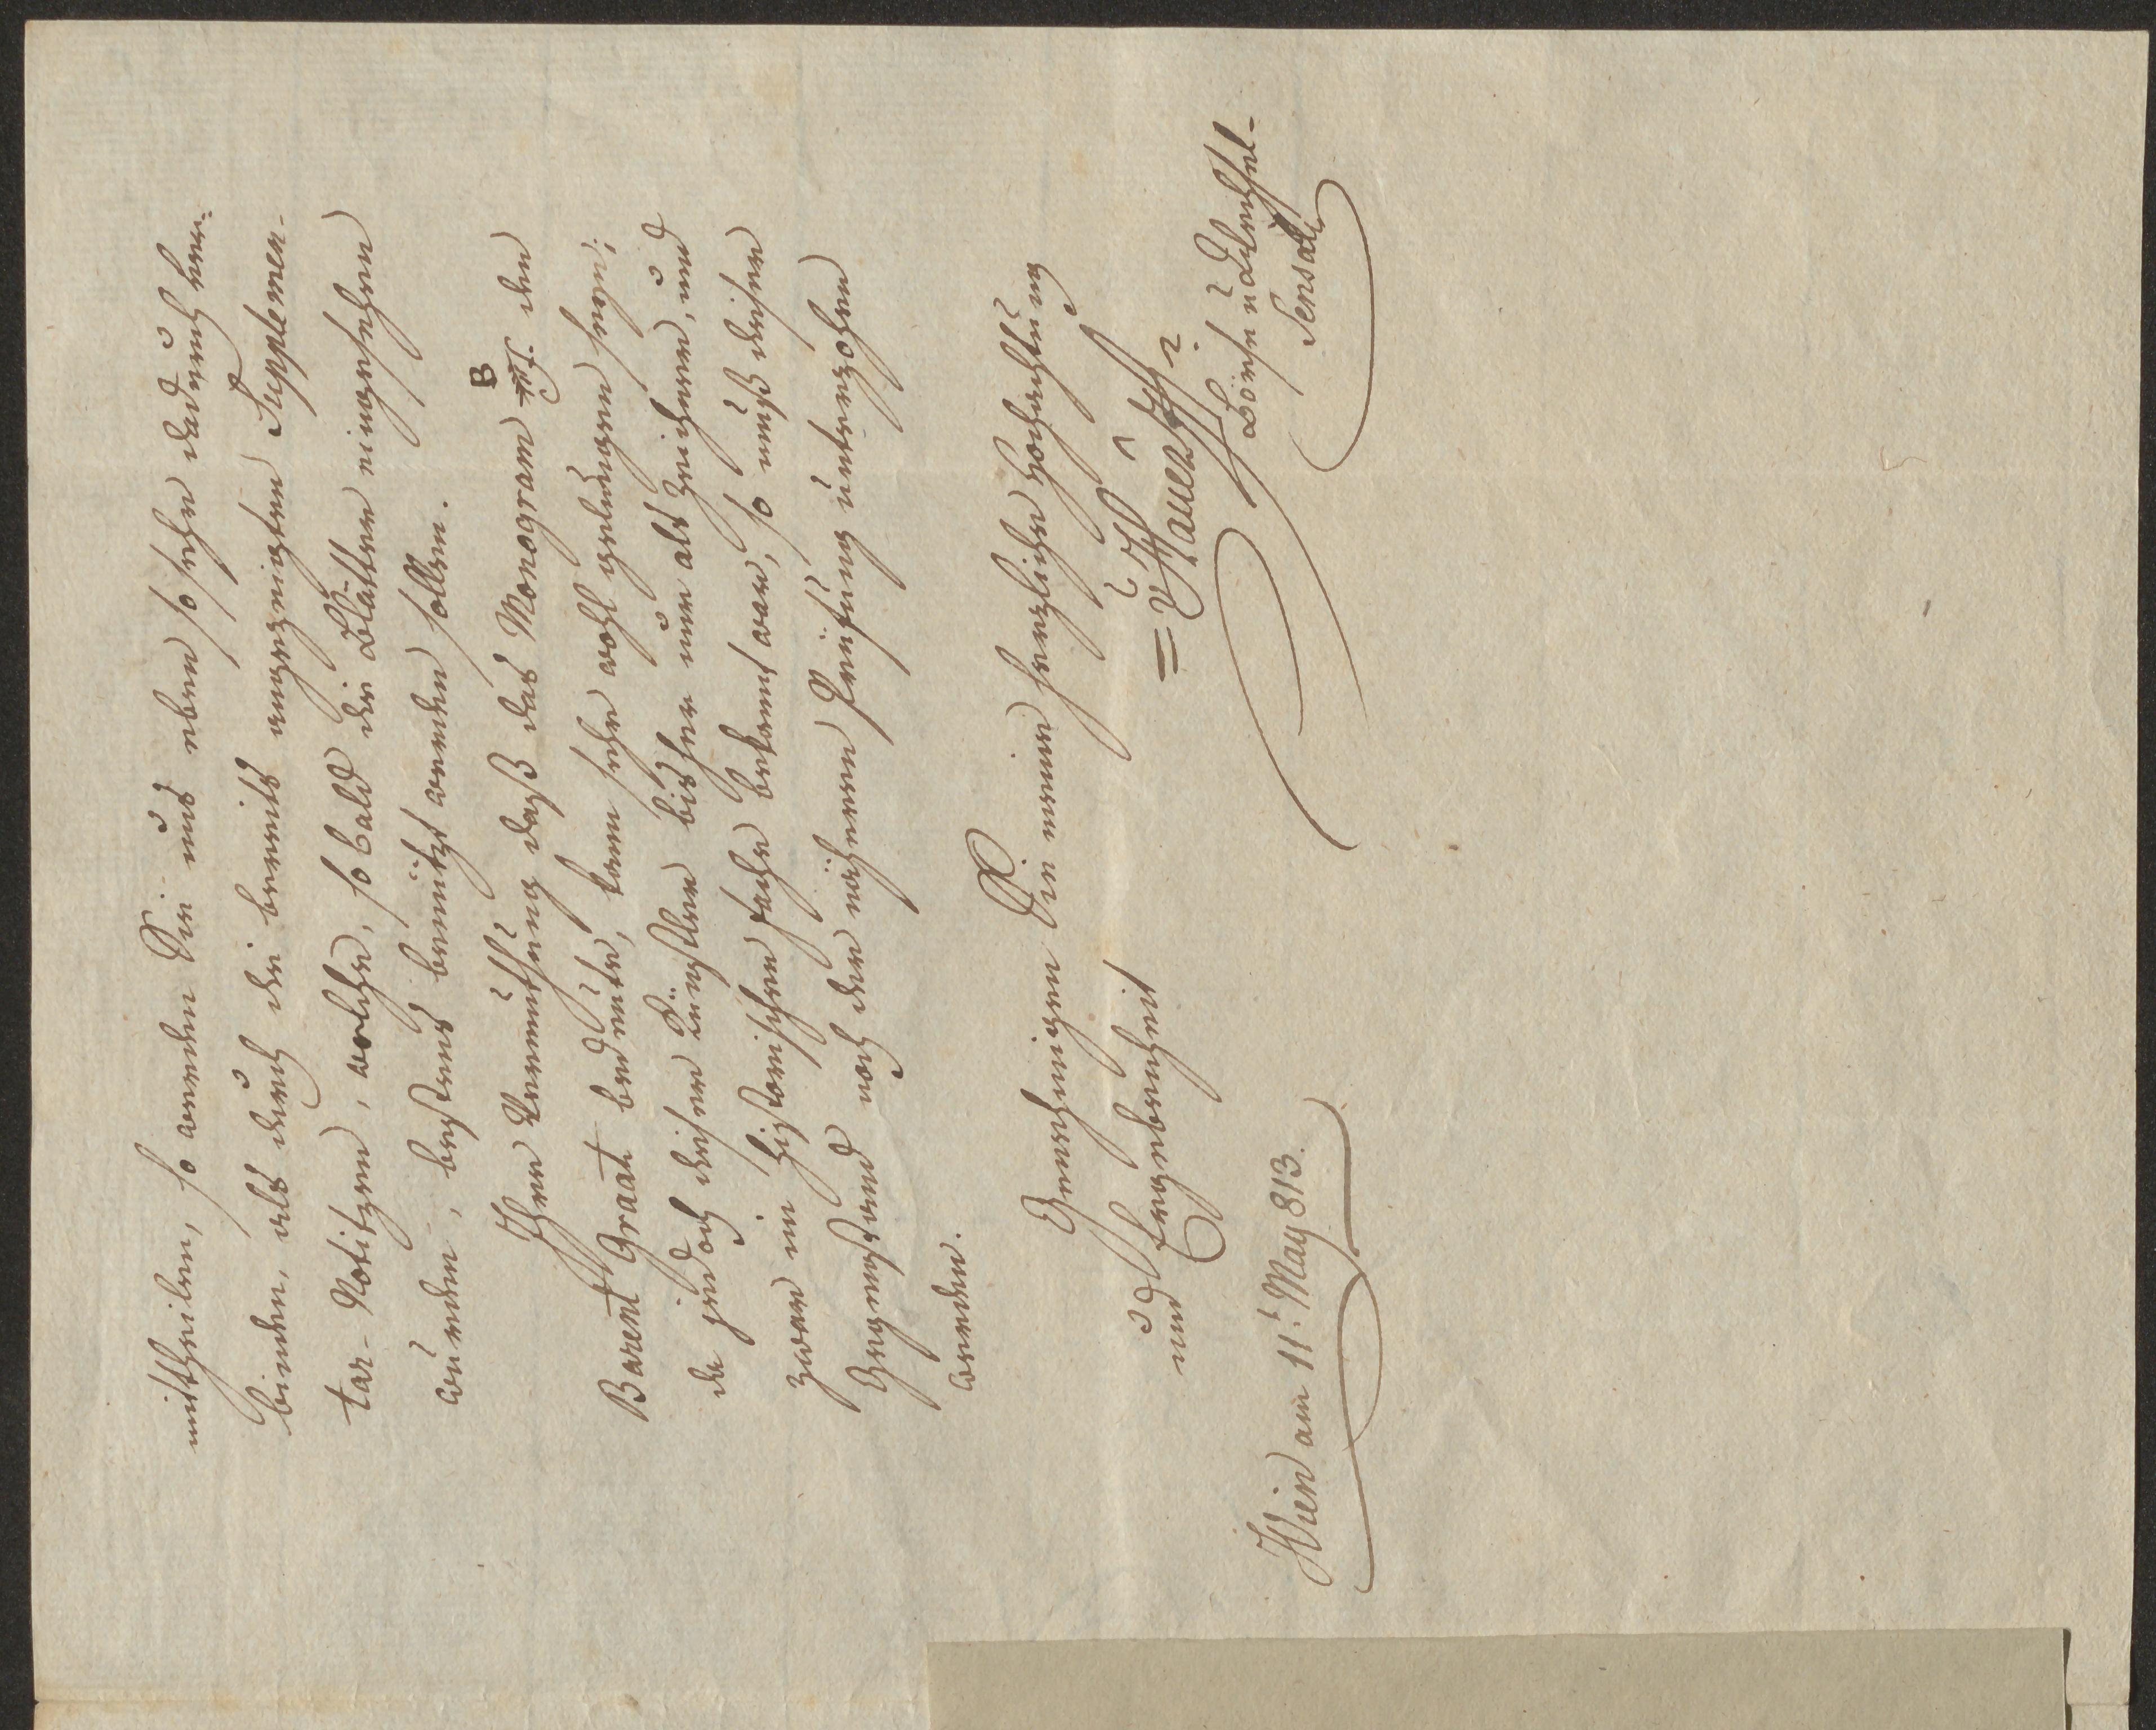 mittheilen, so werden Sie uns eben so sehr dadurch ver-
binden, als durch die bereits angezeigten Supplemen-
tar-Notitzen, welche, so bald die Blätter eingesehen
würden, bestens benützt werden sollen.
Ihre Vermuthung daß das Monogram B den
Barent Graat bedeute, kann sehr wohl gelungen seyn;
da jedoch dieser Künstler bisher nur als Zeichner, und
zwar im historischen Fache bekannt war, so muß dieser
Gegenstand noch der nähern Prüfung unterzohen
werden.
Genehmigen Sie meine herzliche Hochachtung
und Ergebenheit
Börse u Wechsel-
Sensal
Wien am 11t. May 813.